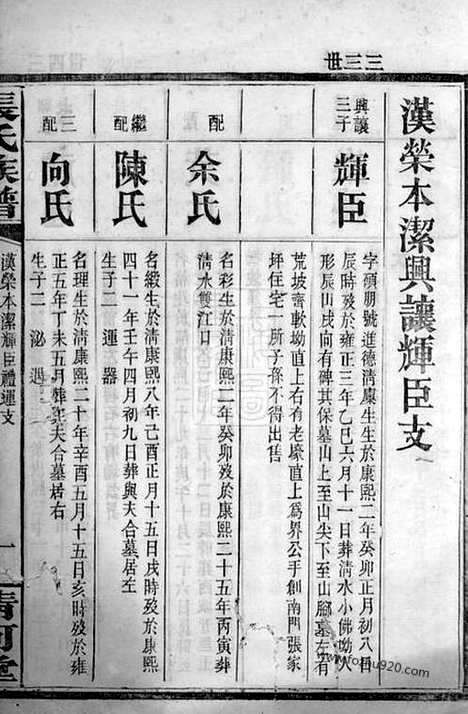 漢榮本潔興讓輝臣支
三三世
興讓三子
輝臣
字碩朋號進德清廩生生於康熙二年癸卯正月初八日
辰時歿於雍正三年乙巳六月十一日葬清水小佛坳人
形辰山戌向有碑其保墓山上至山尖下至山腳墓左有
荒坡齊軟坳直上右有老壕直上爲界公手創南門張家
坪住宅一所子孫不得出售
配
余氏
名彩生於清康熙二年癸卯歿於康熙二十五年丙寅葬
清水雙江口
繼配
陳氏
名緞生於清康熙八年己酉正月十五日戌時歿於康熙
四十一年壬午四月初九日葬與夫合墓居左
生子二 運 器
三配
向氏
名理生於清康熙二十年辛酉五月十五日亥時歿於雍
正五年丁未五月葬與夫合墓居右
生子二 泌 遇
張氏族譜
漢榮本潔輝臣禮運支
一
清河堂
www.foudu920.com